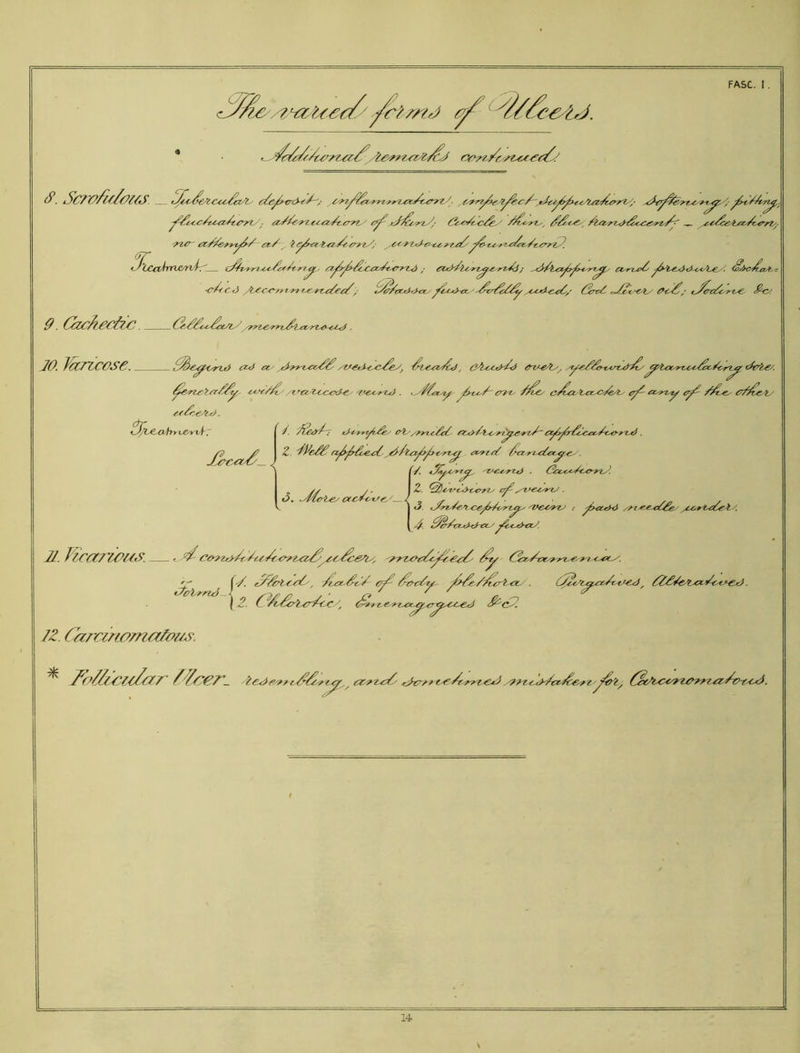 FASC. I.
The varied forms of Ulcers.
Additional remarks continued.
8. Scrofulous — Tubercular deposit; inflammation; imperfect suppuration; softening; pitting,
fluctuation; attenuation of skin; Cuticle thin, blue, translucent — ulceration,
no attempt at reparation; unsound foundation.
Treatment:— Stimulating applications; astringents; strapping and pressure.
recommended; bulky used; Cod Liver Oil; Iodine &c.
9. Cachectic. — Cellular membranous.
10. Varicose. — Begins as a small vesicle, bursts, crusts over, yellowish granulating sore.
Generally with varicose veins. May put on the character of any of the other
ulcers.
Treatment:
Local —
1. Rest; simple or mild astringent applications.
2. Well applied strapping and bandage.
3. More active —
1. Tying veins. Caution.
2. Division of veins.
3. Intercepting veins; pass needle under.
4. Potassa fusa.
11. Vicarious. — A constitutional ulcer, modified by Catamenia.
Forms —
1. Florid, habit of body plethoric. Purgatives, Alteratives.
2. Chlorotic, Emenagogues &c.
12. Carcinomatous.
* Follicular Ulcer — resembling, and sometimes mistaken for, Carcinomatous.
14